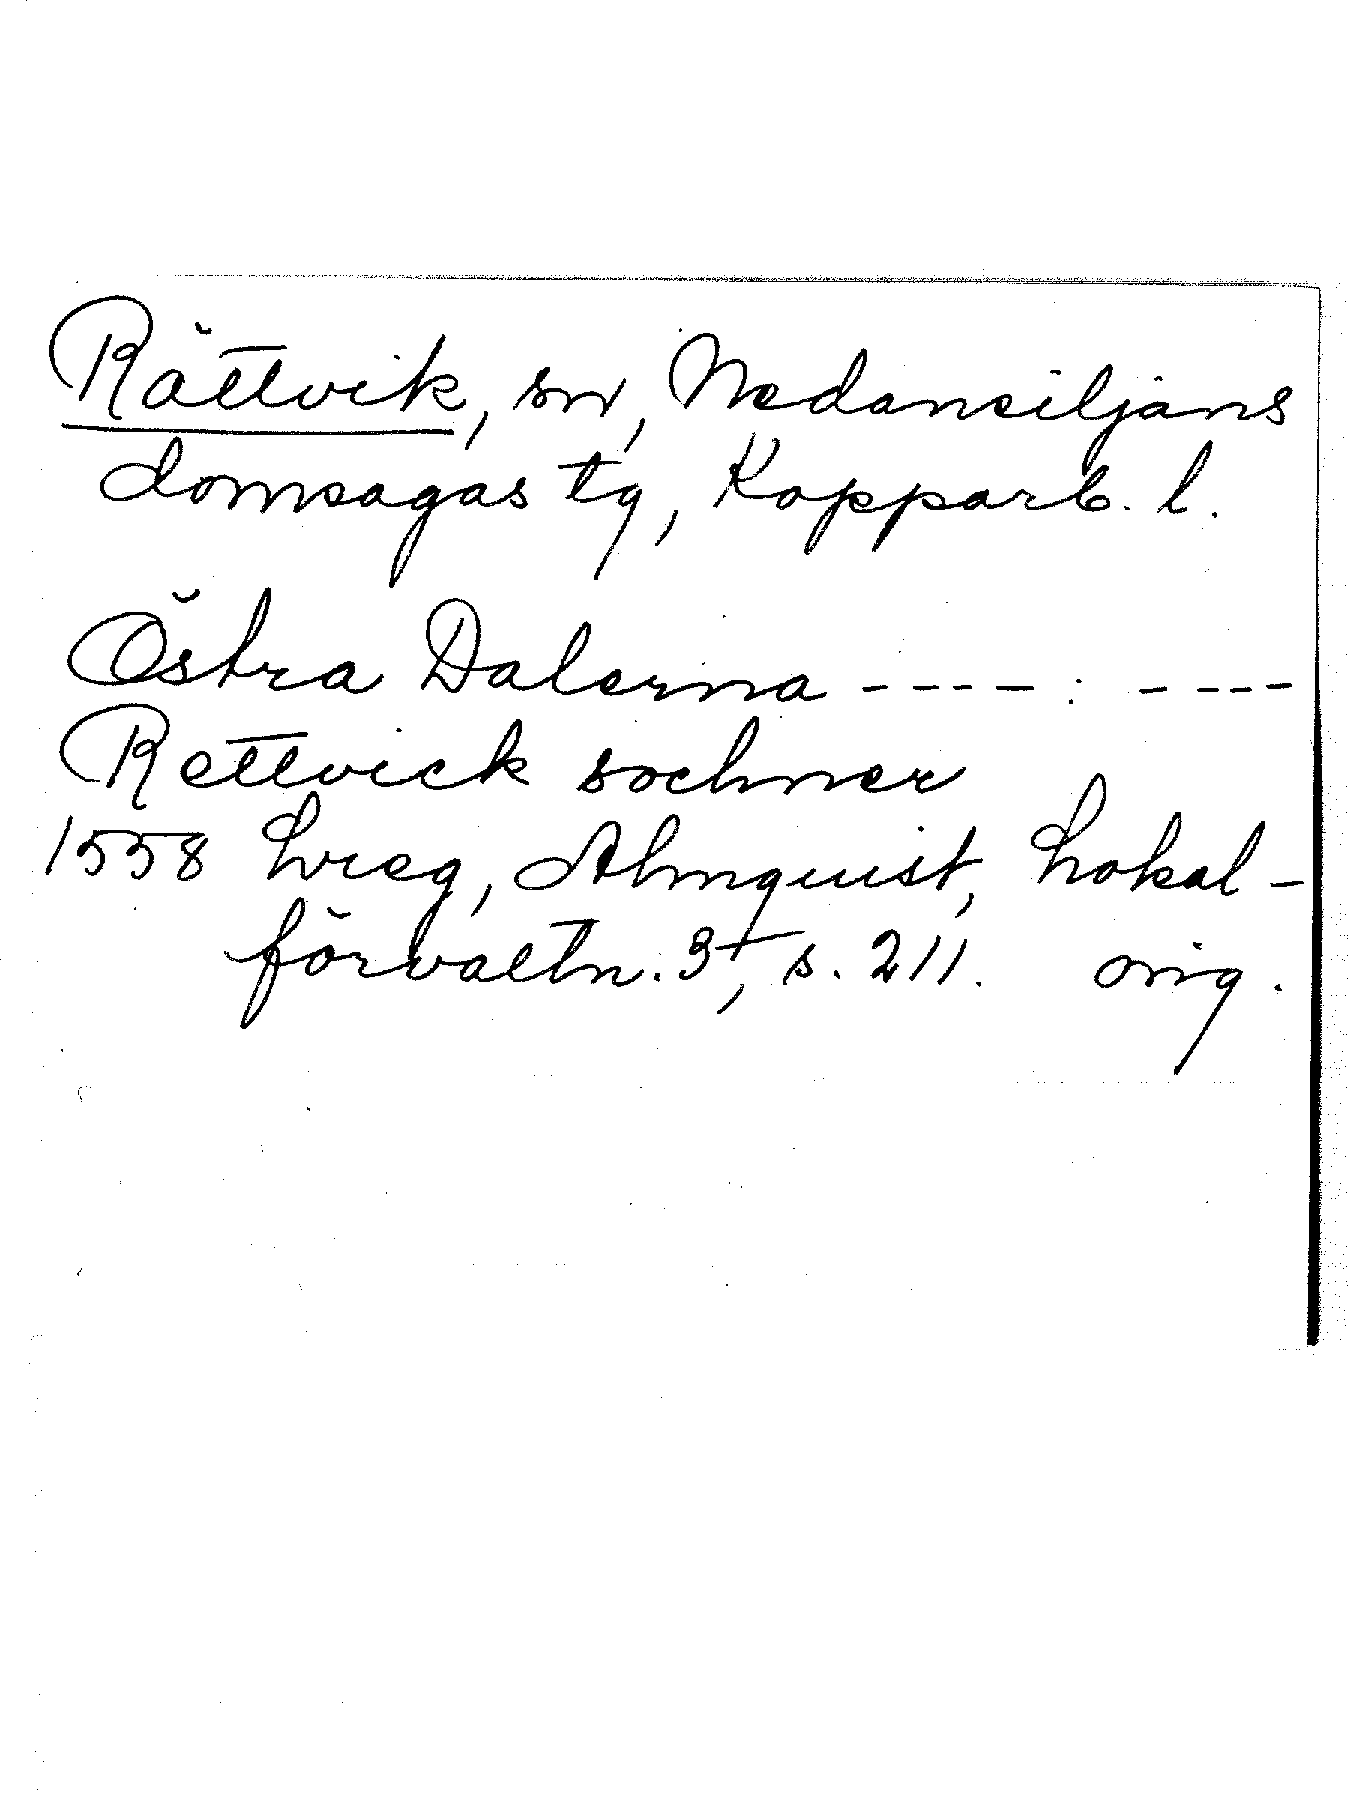 Rättvik, sn, Nedansiljans
domsagas tg, Kopparb. l.
Östra Dalerna ----: ----
Rettvick sochner
1558 Lreg, Almquist, Lokal-
förvaltn. 3, s. 211. orig.